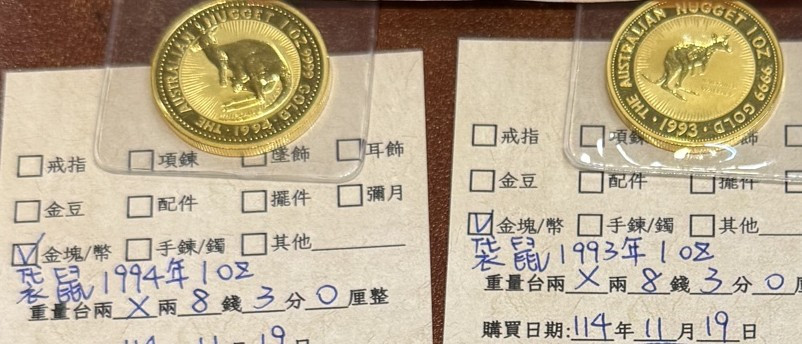 THE AUSTRALIAN NUGGET 1 OZ 9999 GOLD · 1994 ·
□戒指 □項鍊 □墜飾 □耳飾
□金豆 □配件 □擺件 □彌月
☑金塊/幣 □手鍊/鐲 □其他
袋鼠1994年1OZ
重量台兩X兩8錢3分0厘整
114 11 19日
THE AUSTRALIAN NUGGET 1 OZ 9999 GOLD · 1993 ·
□戒指 □項鍊 飾
□金豆 □配件 □擺件
☑金塊/幣 □手鍊/鐲 □其他
袋鼠1993年1OZ
重量台兩X兩8錢3分0
購買日期:114年11月19日